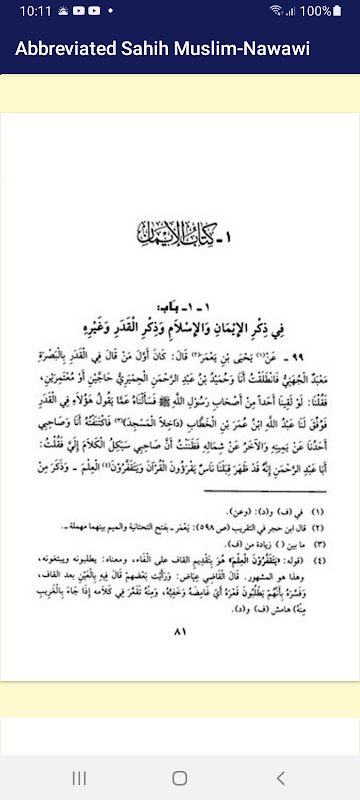 10:11
100%
Abbreviated Sahih Muslim-Nawawi
١ - كتاب الإيمان
١ - ١ - باب:
فِي ذِكْرِ الإِيْمَانِ وَالإِسْلَامِ وَذِكْرِ الْقَدَرِ وَغَيْرِهِ
٩٩ - عَنْ(١) يَحْيَى بْنِ يَعْمَرَ(٢) قَالَ: كَانَ أَوَّلَ مَنْ قَالَ فِي الْقَدَرِ بِالْبَصْرَةِ
مَعْبَدٌ الْجُهَنِيُّ فَانْطَلَقْتُ أَنَا وَحُمَيْدُ بْنُ عَبْدِ الرَّحْمَنِ الْحِمْيَرِيُّ حَاجَّيْنِ أَوْ مُعْتَمِرَيْنِ،
فَقُلْنَا: لَوْ لَقِينَا أَحَداً مِنْ أَصْحَابِ رَسُولِ اللَّهِ ﷺ فَسَأَلْنَاهُ عَمَّا يَقُولُ هَؤُلَاءِ فِي الْقَدَرِ
فَوُفِّقَ لَنَا عَبْدُ اللَّهِ ابْنُ عُمَرَ بْنِ الْخَطَّابِ (دَاخِلاً الْمَسْجِدَ)(٣) فَاكْتَنَفْتُهُ أَنَا وَصَاحِبِي
أَحَدُنَا عَنْ يَمِينِهِ وَالآخَرُ عَنْ شِمَالِهِ فَظَنَنْتُ أَنَّ صَاحِبِي سَيَكِلُ الْكَلَامَ إِلَيَّ فَقُلْتُ:
أَبَا عَبْدِ الرَّحْمَنِ إِنَّهُ قَدْ ظَهَرَ قِبَلَنَا نَاسٌ يَقْرَؤُونَ الْقُرْآنَ وَيَتَقَفَّرُونَ(٤) الْعِلْمَ - وَذَكَرَ مِنْ
(١) في (ف) و(د): (وعن).
(٢) قال ابن حجر في التقريب (ص ٥٩٨): يَعْمَر - بفتح التحتانية والميم بينهما مهملة -.
(٣) ما بين ( ) زيادة من (ف).
(٤) (قوله: «يَتَقَفَّرُونَ الْعِلْمَ» هُوَ بِتَقْدِيمِ القاف على الْفَاء، ومعناه: يطلبونه ويبتغونه،
وهذا هو المشهور. قَالَ الْقَاضِي عِيَاض: وَرَأَيْت بَعْضهمْ قَالَ فِيهِ بِالْعَيْنِ بعد القاف،
وَفَسَّرَهُ بِأَنَّهُمْ يَطْلُبُونَ قَعْرَهُ أَيْ غَامِضَهُ وَخَفِيَّهُ، وَمِنْهُ تَقَعَّرَ فِي كَلَامه إِذَا جَاءَ بِالْغَرِيبِ
مِنْهُ) هامش (ف) و(د).
٨١